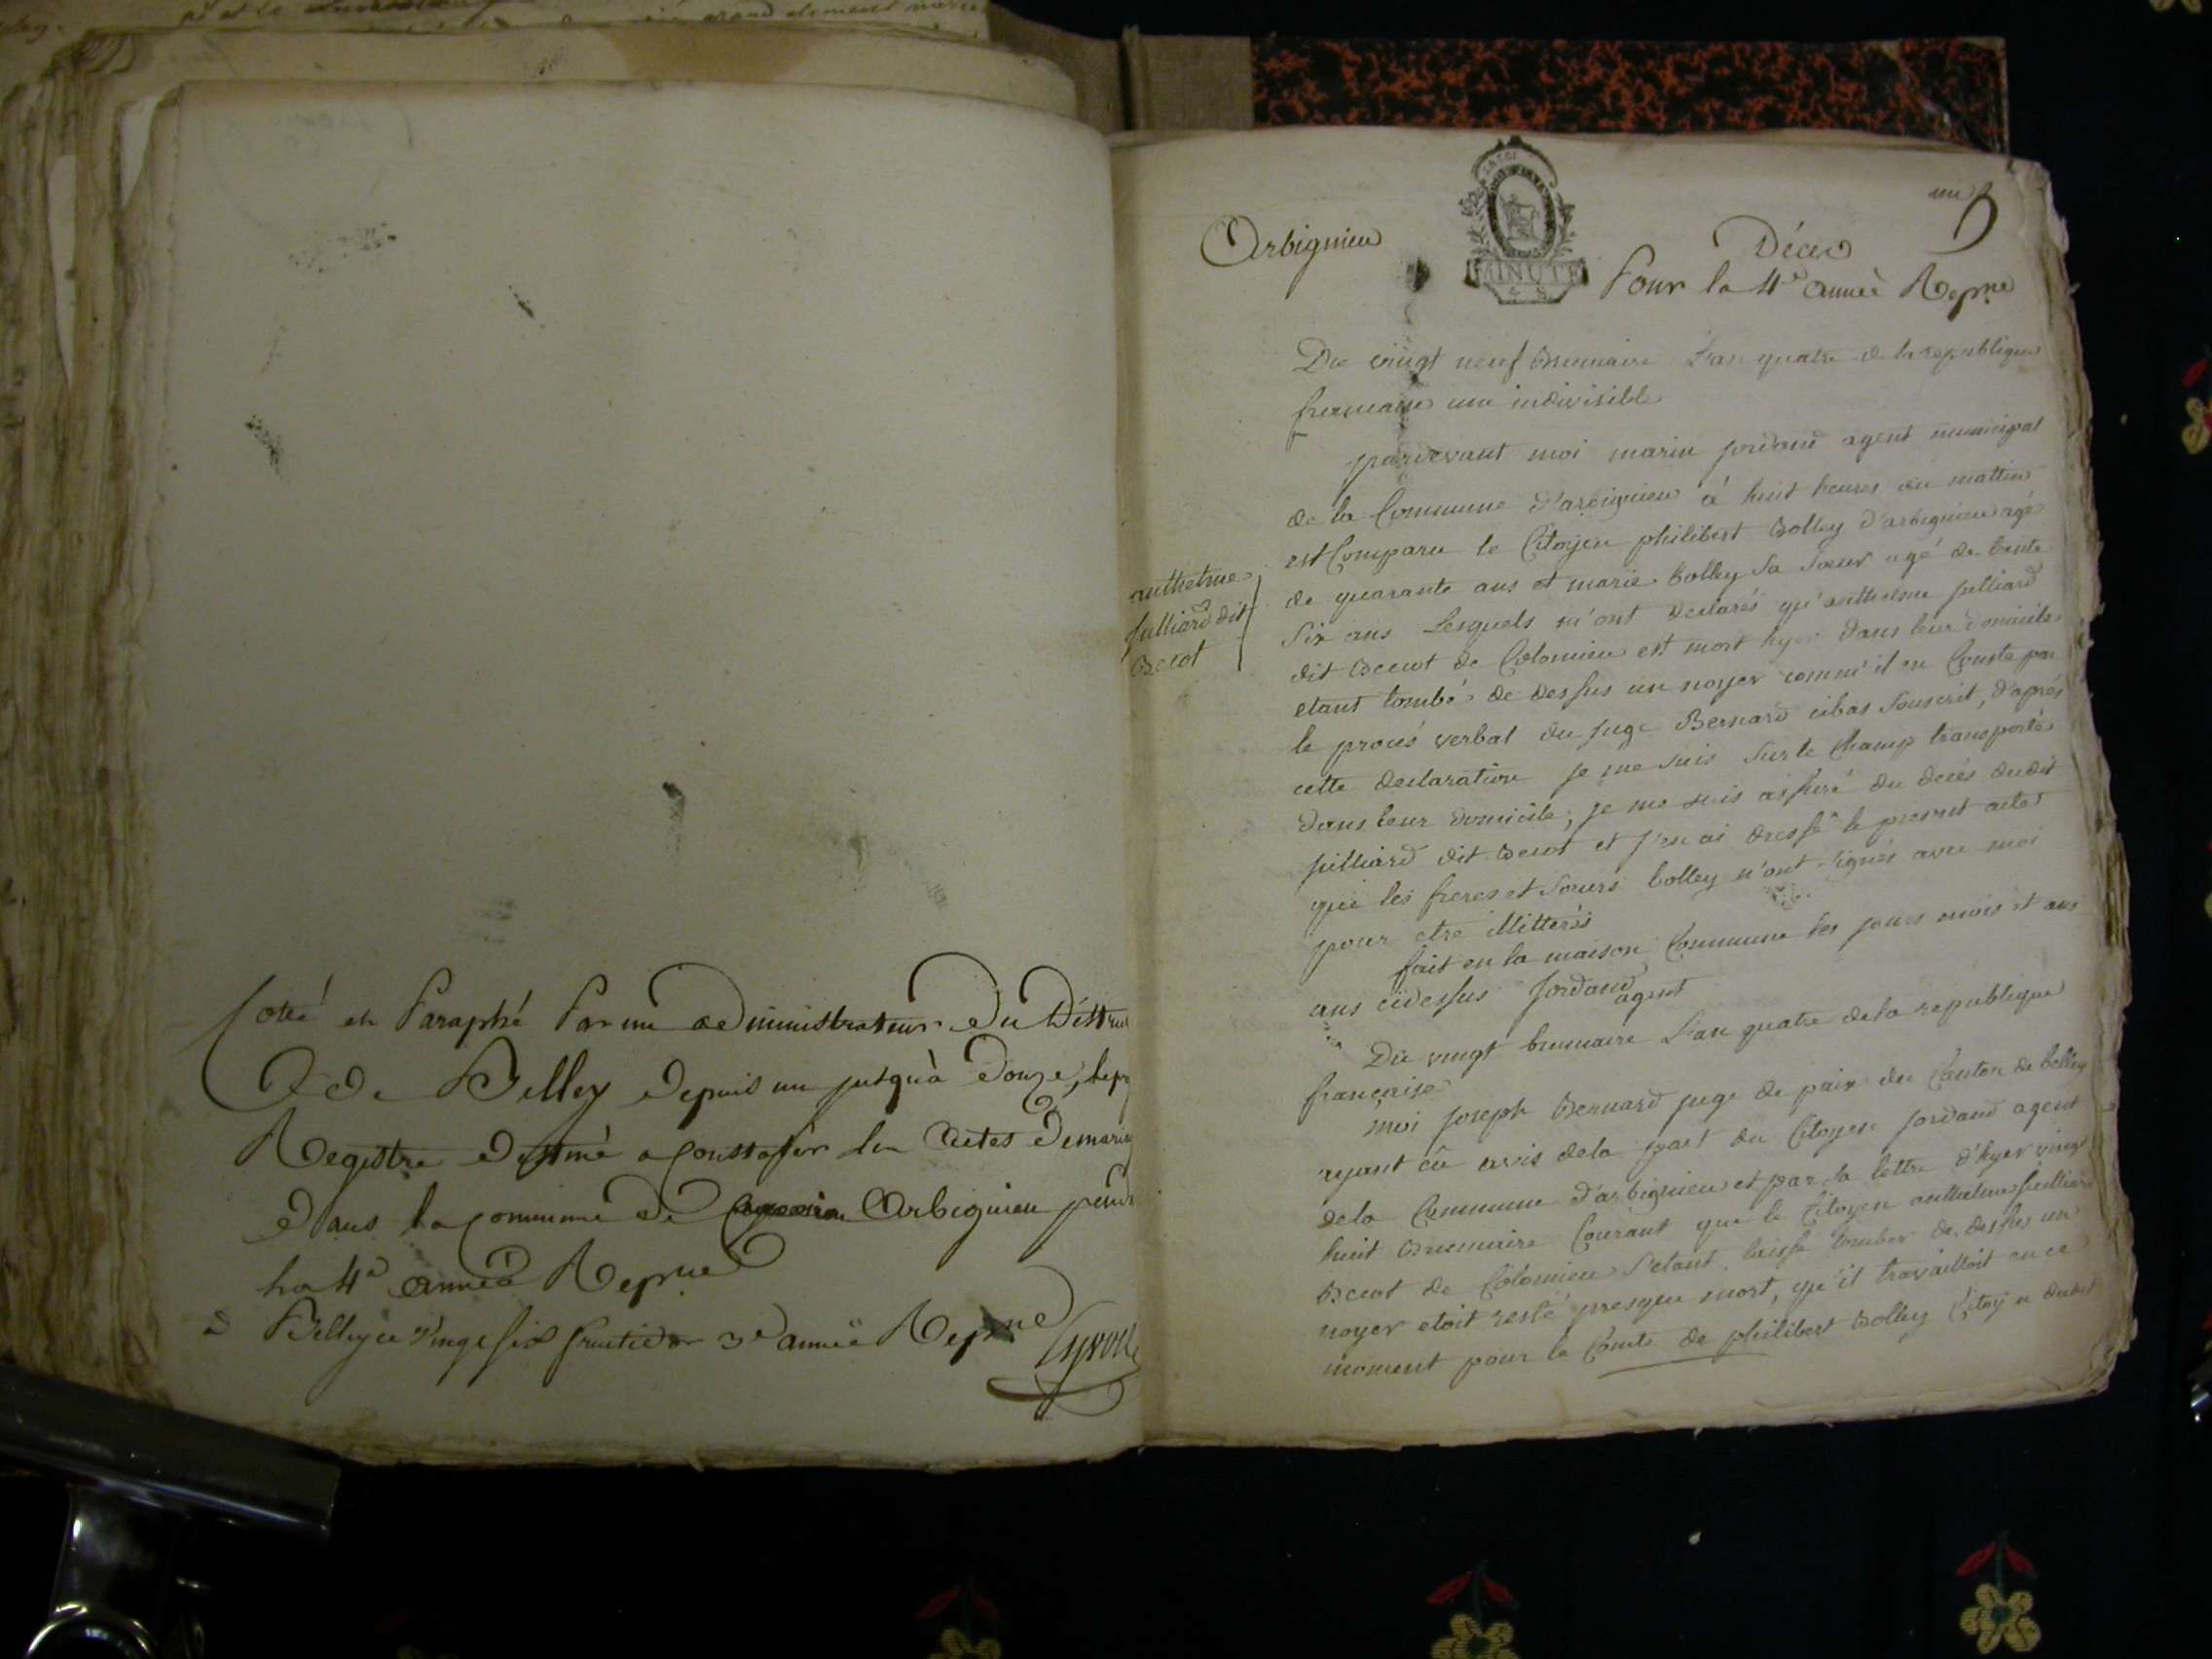 Cotté et Paraphé Par un administrateur Du Distric
De Belley depuis un jusqu'à Douze, le pr
Registre Destiné a Constater les Actes De maria
Dans la Commune de Arbignieu pend
La 4e année Repne
Belley ce vingt six fructidor 3e année Repne
Arbignieu
un
MINUTE
Décès
Pour la 4e année Repne
Du vingt neuf Brumaire L'an quatre de la republique
francaise une indivisible
pardevant moi marin jordand agent municipal
de la Commune d'arbignieu à huit heures du mattin
est Comparu le Citoyen philibert Bolley d'arbignieu agé
de quarante ans et marie Bolley Sa Sœur agé de trente
Six ans Lesquels m'ont Declarés qu'anthelme julliard
dit Becot de Colomieu est mort hyer dans leur domicile
etant tombé de dessus un noyer comm'il en Conste par
le procés verbal du juge Bernard cibas Souscrit, d'aprés
cette declaration je me suis sur le Champ transporté
dans leur domicile, je me suis assuré du décés dudit
julliard dit Becot et j'en ai dressé le present acte
que les freres et Sœurs bolley n'ont signés avec moi
pour etre illitterés
fait en la maison Commune les jours mois et ans
ans cidessus Jordand agent
anthelme
julliard dit
Becot
Du vingt brumaire L'an quatre dela republique
française
moi joseph Bernard juge de paix du Canton de belley
ayant eû avis dela part du Citoyen jordand agent
dela Commune d'arbignieu et par sa lettre d'hyer vingt
huit Brumaire Courant que le Citoyen anthelme julliard
Becot de Colomieu S'etant laissé tomber de dessus un
noyer etoit resté presque mort, qu'il travailloit en ce
moment pour le Comte de philibert Bolley Citoyen dudit